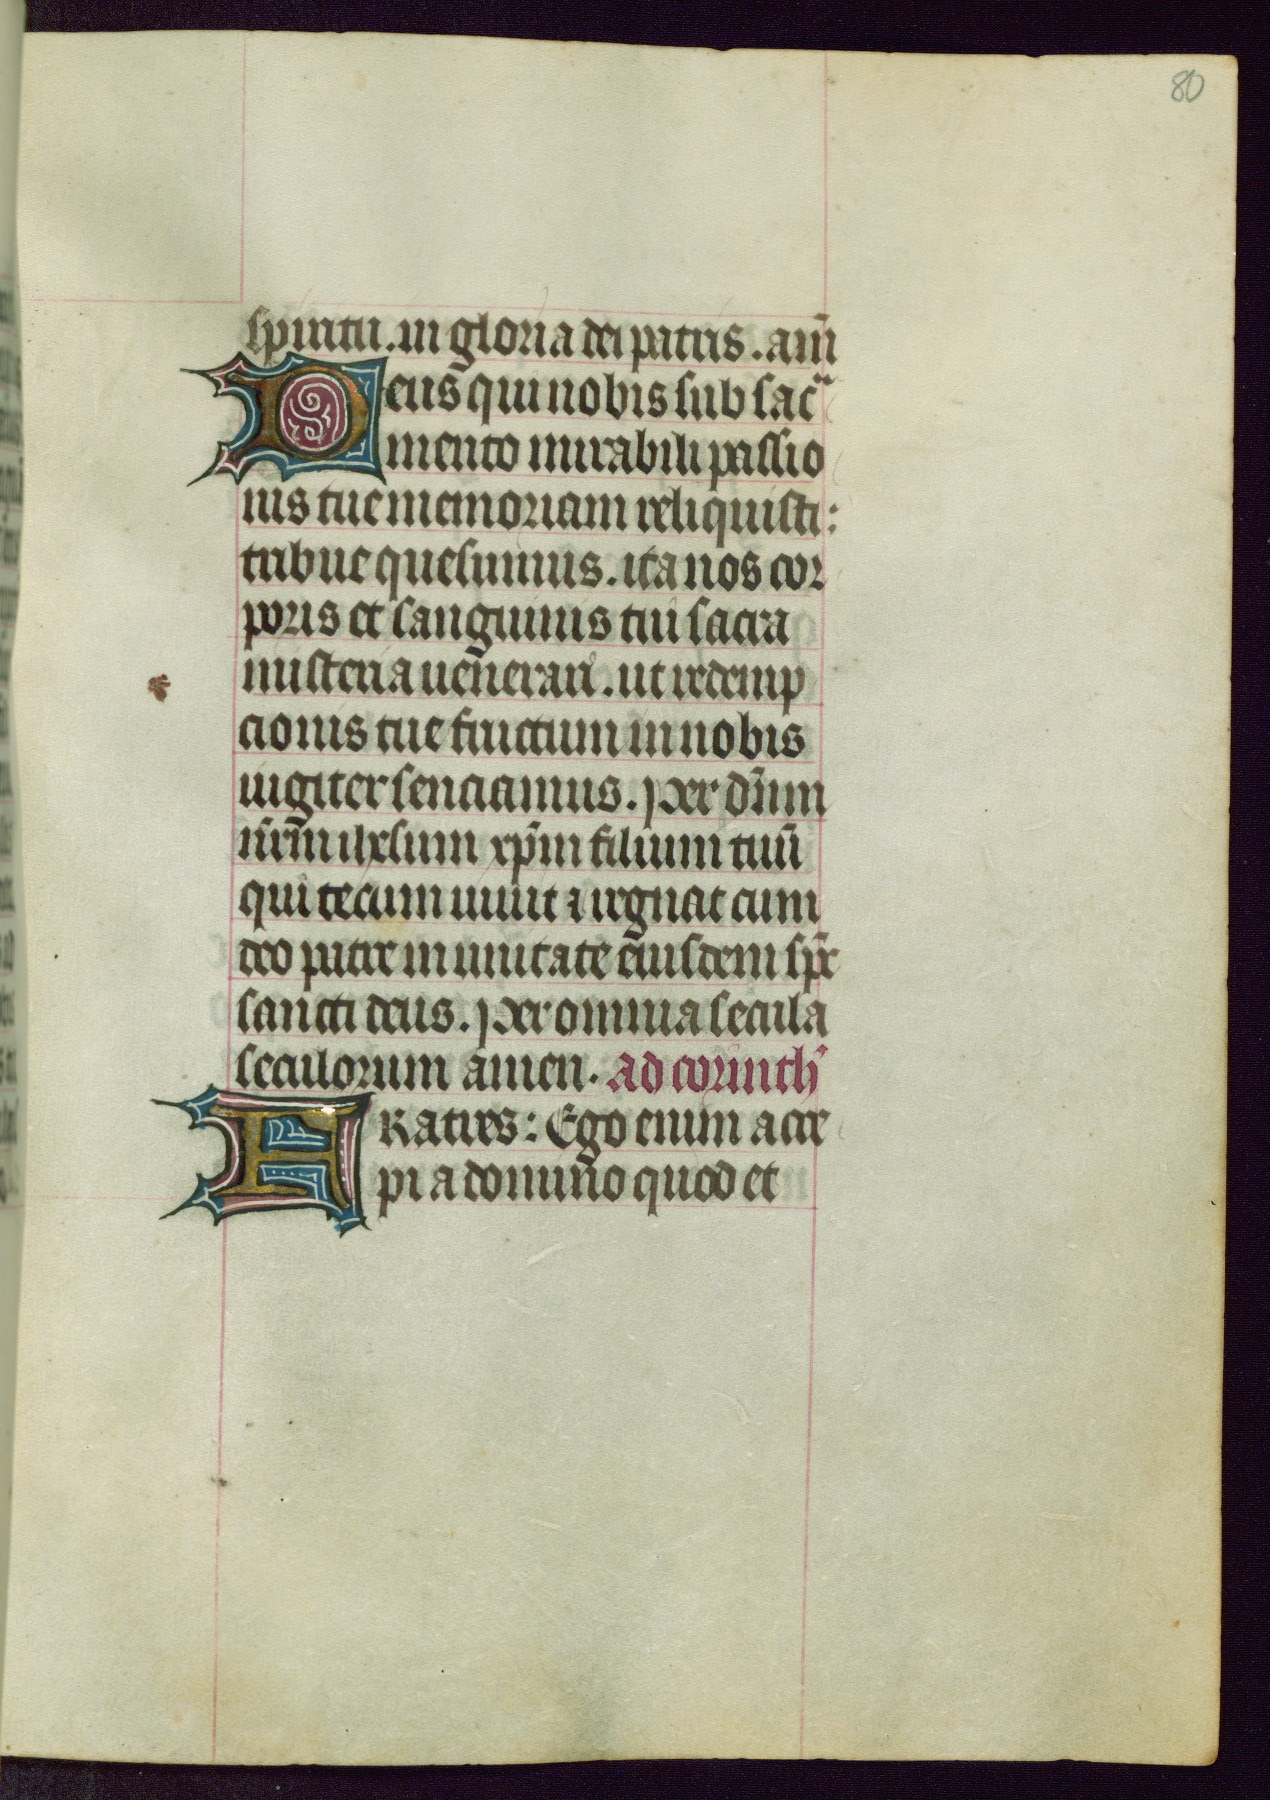 80
spiritu. in gloria dei patris. am̄
Deus qui nobis sub sacᵃ
mento mirabili passio
nis tue memoriam reliquisti:
tribue quesumus. ita nos cor
poris et sanguinis tui sacra
misteria venerari. ut redemp
cionis tue fructum in nobis
iugiter senciamus. Per dn̄m
nr̄m ihesum xp̄m filium tuū
qui tecum uiuit ⁊ regnat cum
deo patre in unitate eiusdem sp̄c
sancti deus. Per omnia secula
seculorum amen. Ad corinth'
FRatres: Ego enim acce
pi a domino quod et